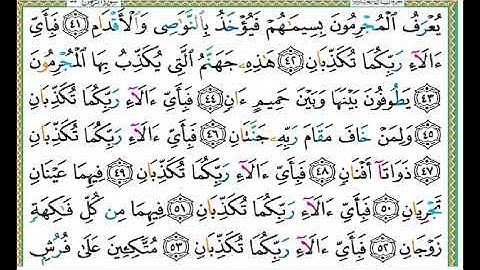 يُعْرَفُ ٱلْمُجْرِمُونَ بِسِيمَـٰهُمْ فَيُؤْخَذُ بِٱلنَّوَٰصِى وَٱلْأَقْدَامِ ٤١ فَبِأَىِّ
ءَالَآءِ رَبِّكُمَا تُكَذِّبَانِ ٤٢ هَـٰذِهِۦ جَهَنَّمُ ٱلَّتِى يُكَذِّبُ بِهَا ٱلْمُجْرِمُونَ
٤٣ يَطُوفُونَ بَيْنَهَا وَبَيْنَ حَمِيمٍ ءَانٍ ٤٤ فَبِأَىِّ ءَالَآءِ رَبِّكُمَا تُكَذِّبَانِ
٤٥ وَلِمَنْ خَافَ مَقَامَ رَبِّهِۦ جَنَّتَانِ ٤٦ فَبِأَىِّ ءَالَآءِ رَبِّكُمَا تُكَذِّبَانِ
٤٧ ذَوَاتَآ أَفْنَانٍ ٤٨ فَبِأَىِّ ءَالَآءِ رَبِّكُمَا تُكَذِّبَانِ ٤٩ فِيهِمَا عَيْنَانِ
تَجْرِيَانِ ٥٠ فَبِأَىِّ ءَالَآءِ رَبِّكُمَا تُكَذِّبَانِ ٥١ فِيهِمَا مِن كُلِّ فَـٰكِهَةٍ
زَوْجَانِ ٥٢ فَبِأَىِّ ءَالَآءِ رَبِّكُمَا تُكَذِّبَانِ ٥٣ مُتَّكِـِٔينَ عَلَىٰ فُرُشٍۭ